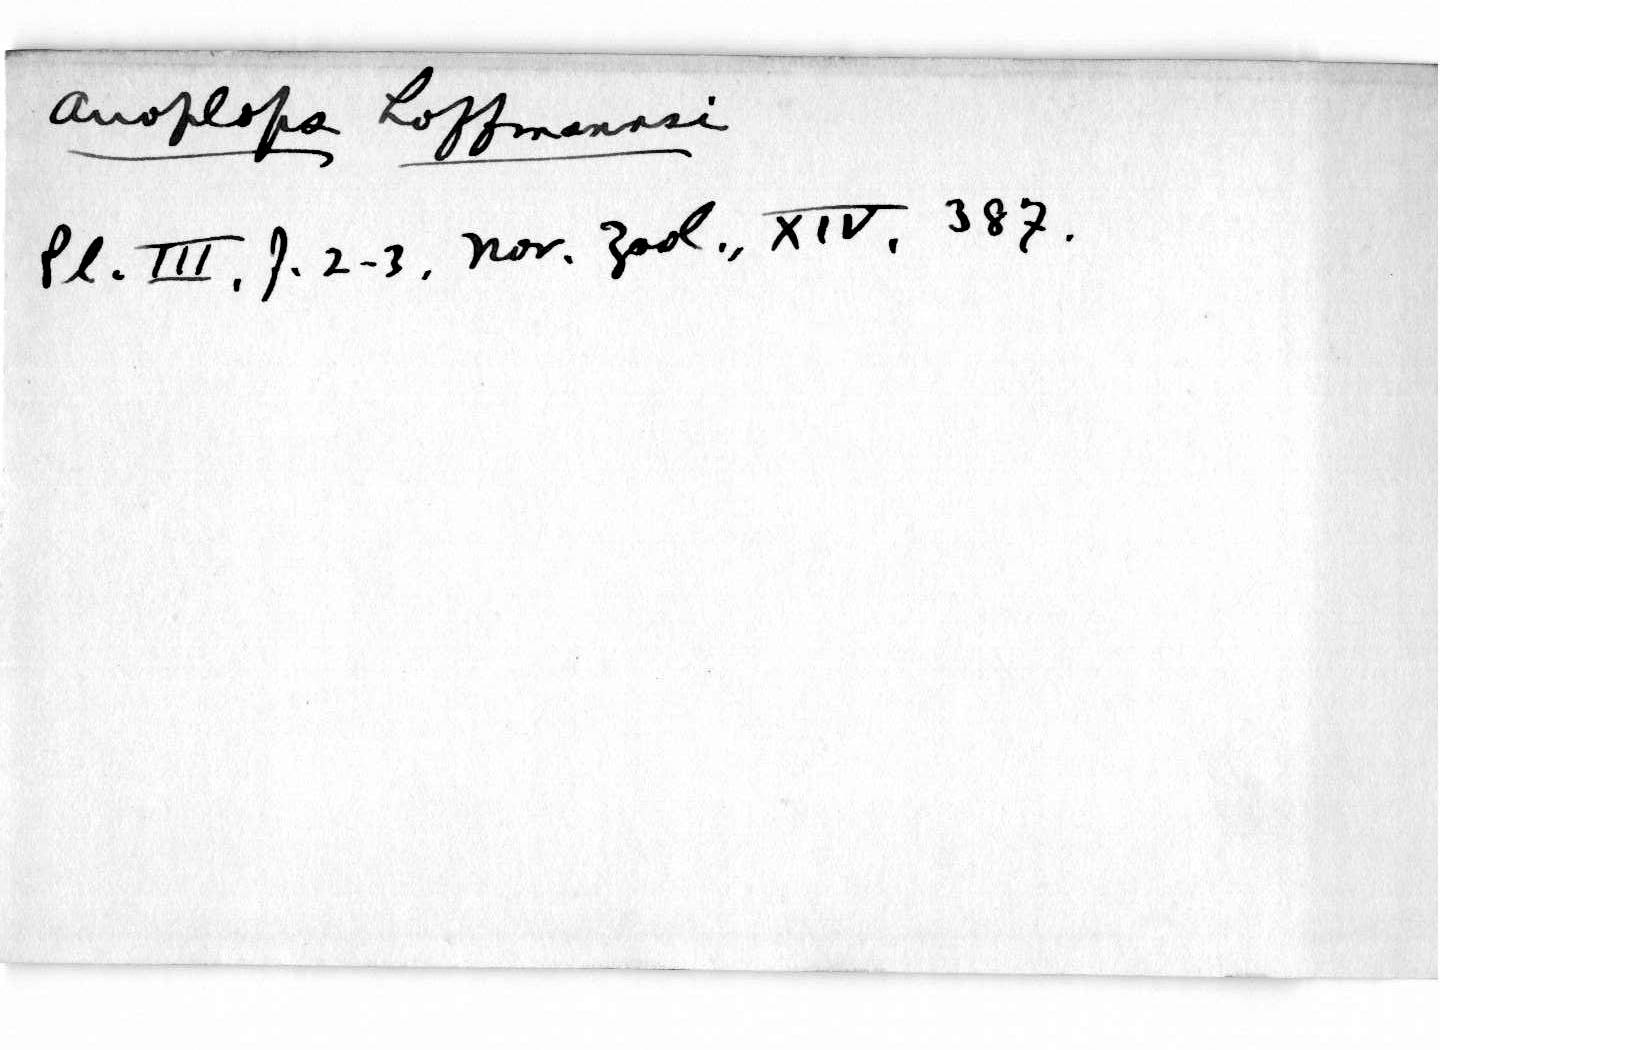 Anoplops hoffmannsi
Pl. III, f. 2-3, Nov. Zool., XIV, 387.